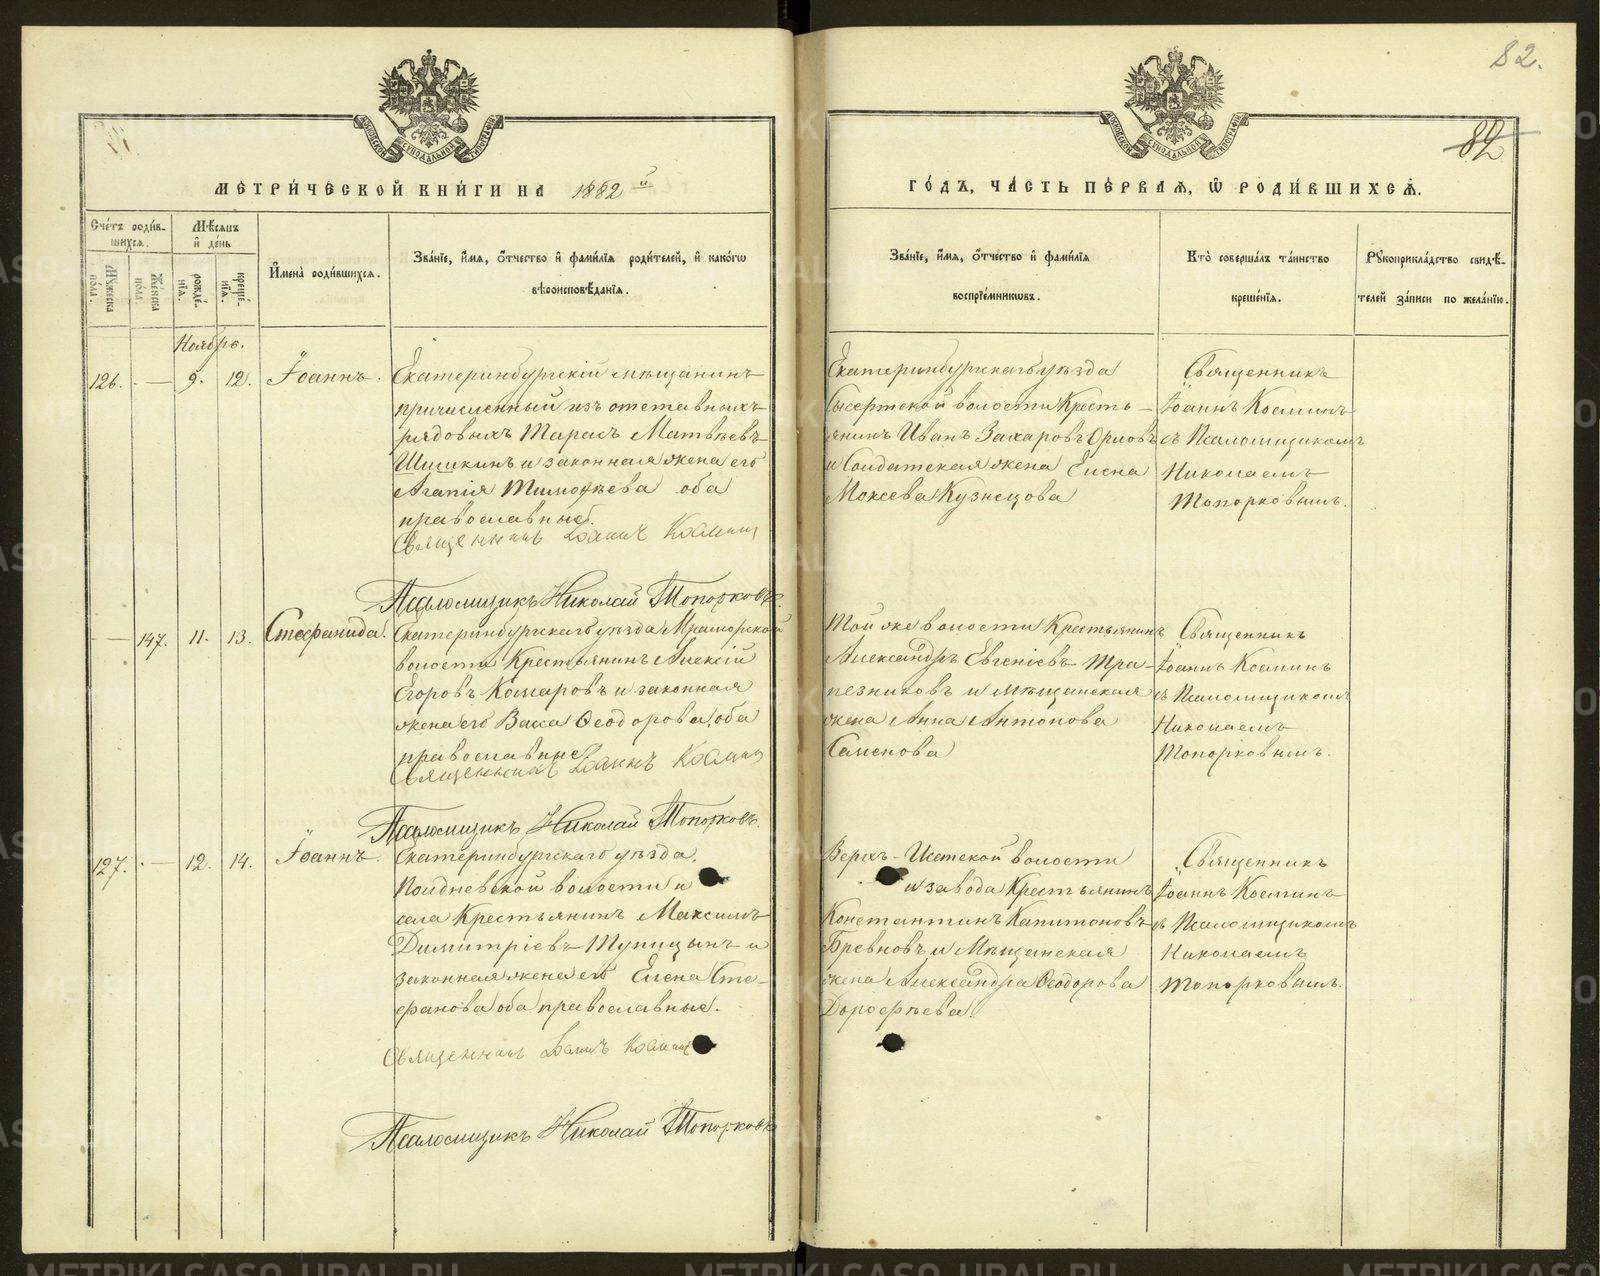 82.
82
МЕТРИ́ЧЕСКОЙ КНИ́ГИ НА 1882 й
ГО́ДЪ, ЧА́СТЬ ПЕ́РВАЯ, Ѽ РОДИ́ВШИХСЯ.
Сче́тъ роди́в-
шихся.
Мѣ́сяцъ
и҆ де́нь
Му́жеска
по́ла.
Же́нска
по́ла.
рожде́-
нїя.
креще́-
нїя.
И҆мена̀ роди́вшихся.
Зва́нїе, и҆́мя, ѻ҆́тчество и҆ фами́лїя роди́телей, и҆ како́гѡ
вѣроисповѣ́данїя.
Зва́нїе, и҆́мя, ѻ҆́тчество и҆ фами́лїя
воспрїе́мникѡвъ.
Кто̀ соверша́лъ та́инство
креще́нїя.
Рꙋкоприкла́дство свидѣ́-
телей за́писи по жела́нїю.
Ноябрь.
126. - — 9. 12. Іоаннъ.
Екатеринбургскій мѣщанинъ
причисленный изъ отставныхъ
рядовыхъ Тарасъ Матвѣевъ
Шишкинъ и законная жена его
Агапія Тимоѳѣева оба
православные.
Священникъ Іоаннъ Космин
Псаломщикъ Николай Топорковъ.
Екатеринбургскаго уѣзда
Сысертской волости Кресть-
янинъ Иванъ Захаровъ Орловъ
и Солдатская жена Елена
Мокеева Кузнецова
Священникъ
Іоаннъ Косминъ
съ Псаломщикомъ
Николаемъ
Топорковымъ.
— 147. 11. 13. Стефанида.
Екатеринбургскаго уѣзда Мраморской
волости Крестьянинъ Алексій
Егоровъ Комаровъ и законная
жена его Васса Ѳеодорова, оба
православные.
Священникъ Іоаннъ Космин
Псаломщикъ Николай Топорковъ.
Той же волости Крестьянинъ
Александръ Евгеніевъ Тра-
пезниковъ и мѣщанская
жена Анна Антонова
Саменова
Священникъ
Іоаннъ Косминъ
съ Псаломщикомъ
Николаемъ
Топорковымъ.
127. - — 12. 14. Іоаннъ.
Екатеринбургскаго уѣзда,
Полдневской волости и
села Крестьянинъ Максимъ
Димитріевъ Тупицынъ и
законная жена его Елена Сте-
фанова оба православные.
Священникъ Іоаннъ Космин
Псаломщикъ Николай Топорковъ
Верхъ-Исетской волости
и завода Крестьянинъ
Константинъ Капитоновъ
Бревновъ и Мѣщанская
жена Александра Ѳеодорова
Дорофѣева.
Священникъ
Іоаннъ Косминъ
съ Псаломщикомъ
Николаемъ
Топорковымъ.
METRIKI.GASO-URAL.RU